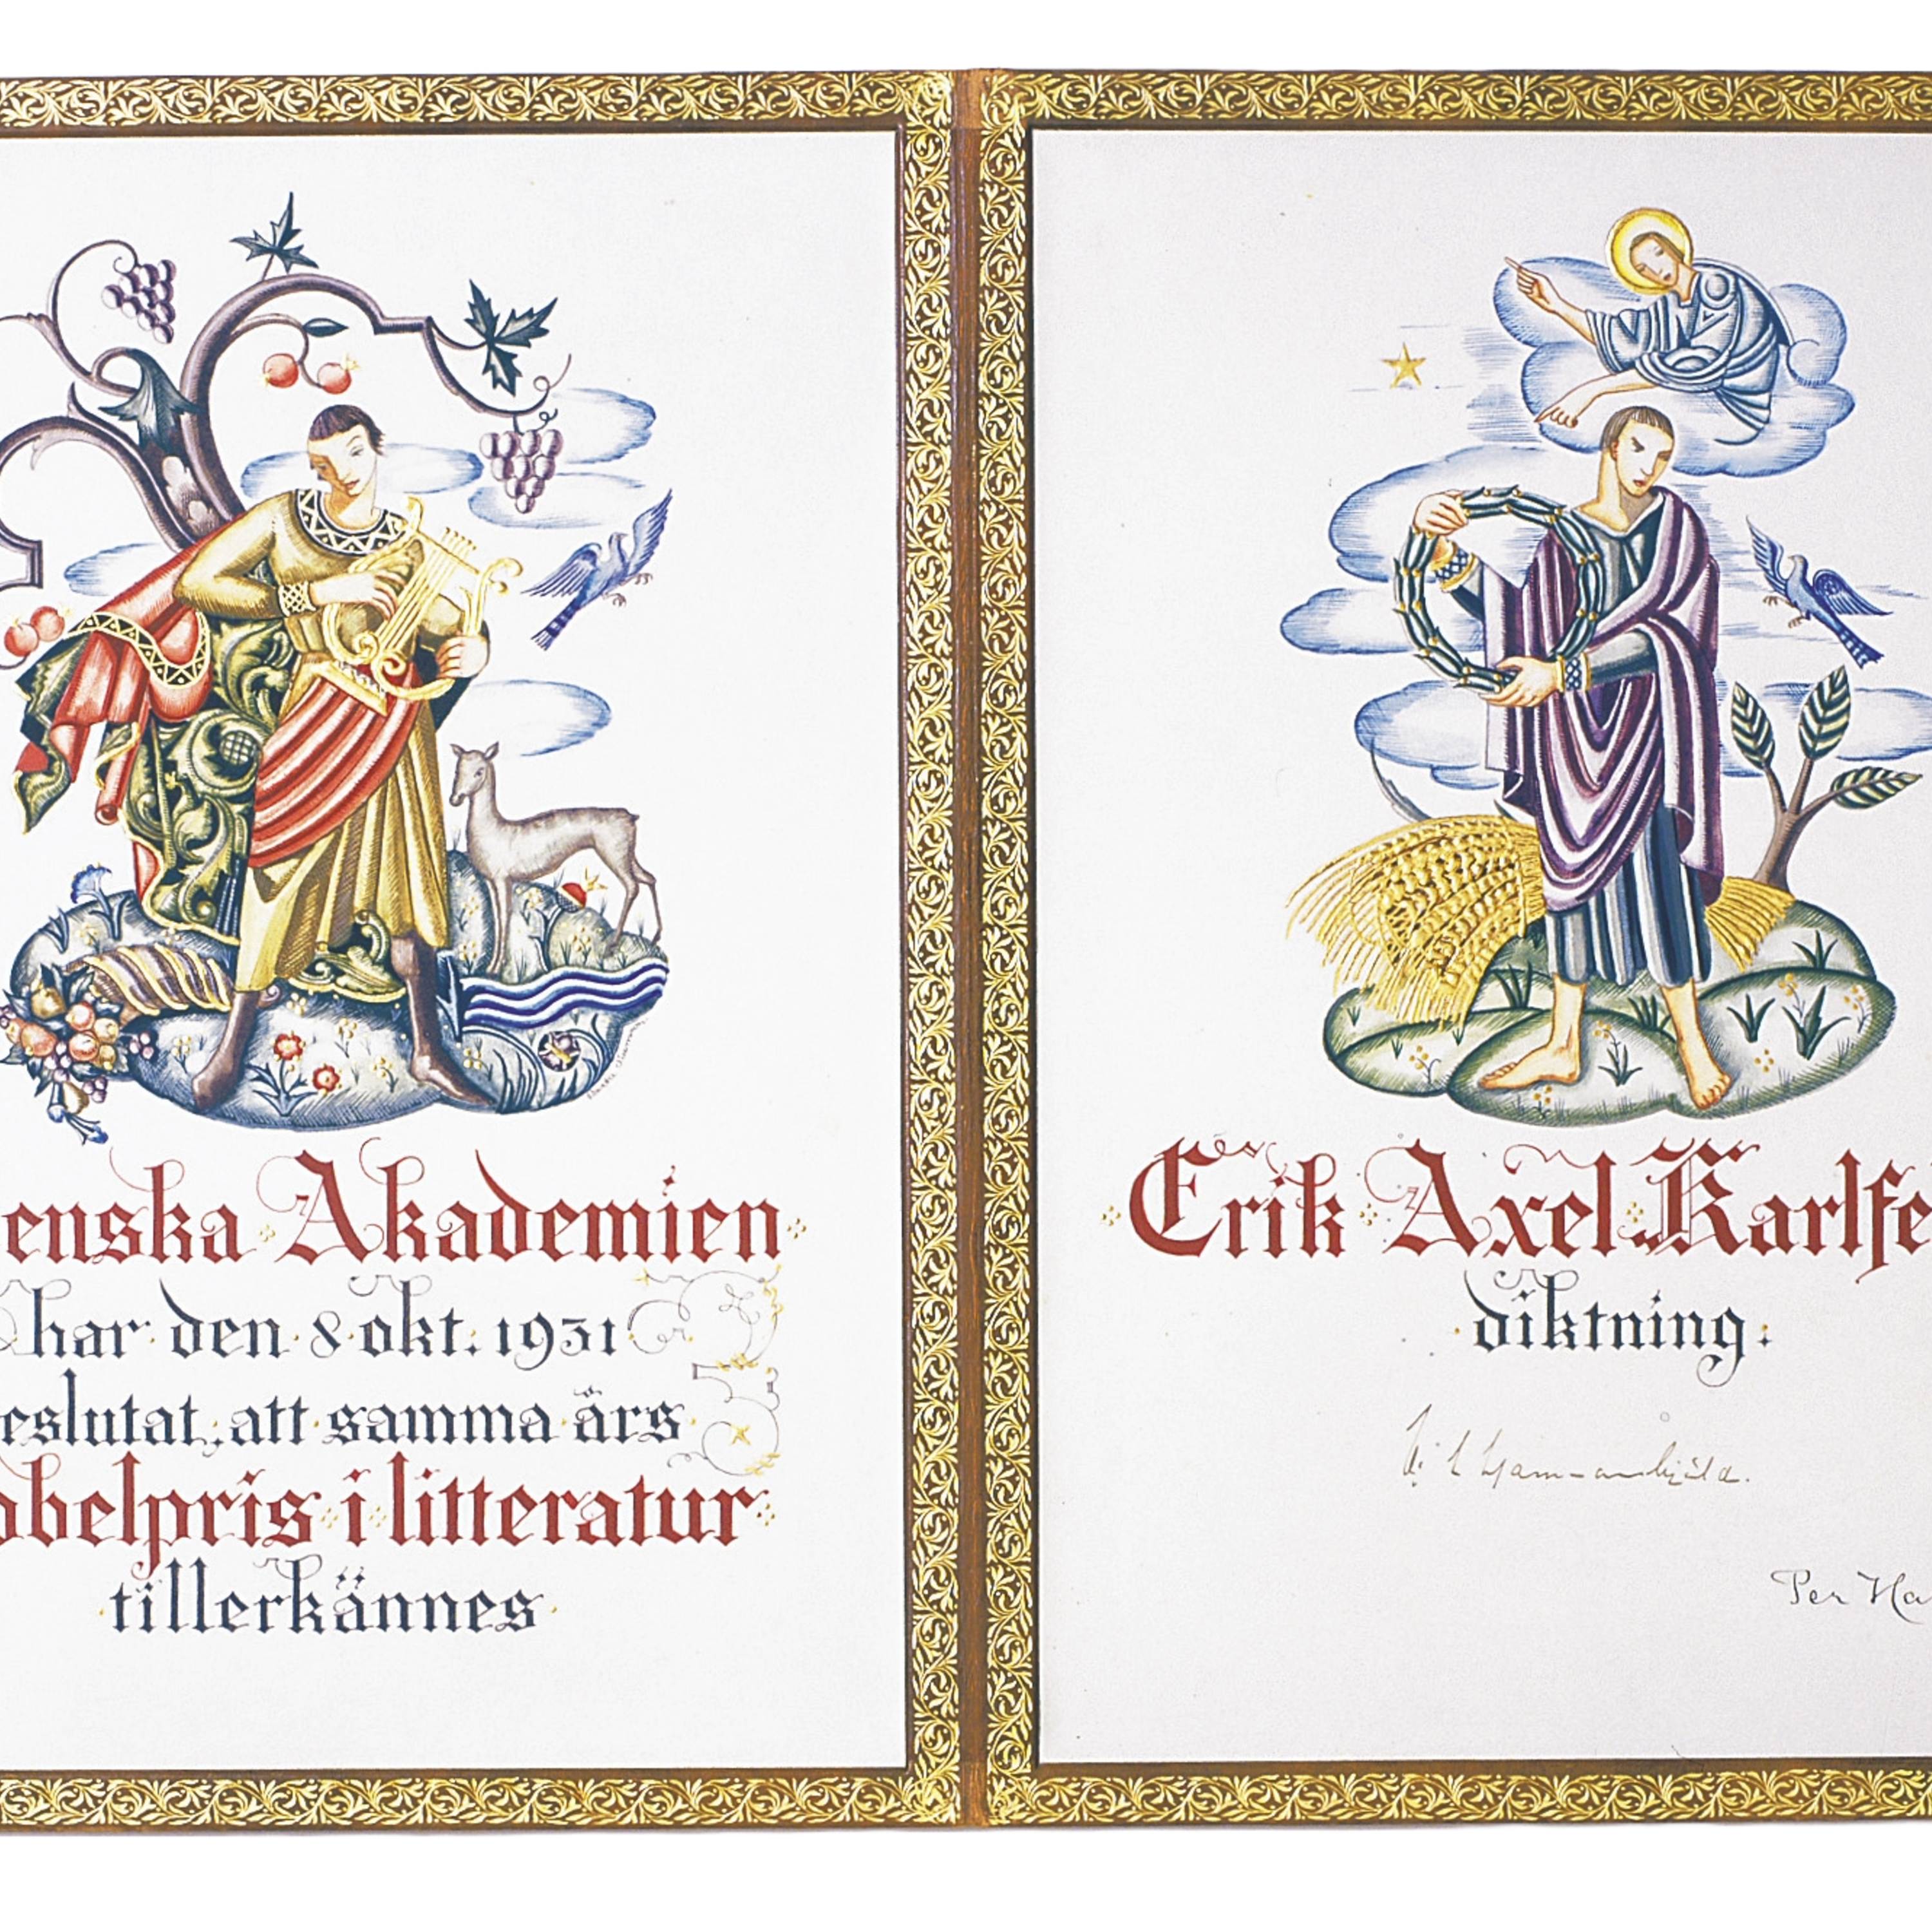 enska Akademien
har den 8 okt. 1931
eslutat, att samma års
obelpris i litteratur
tillerkännes
Erik Axel Karlfe
diktning.
Per Ha